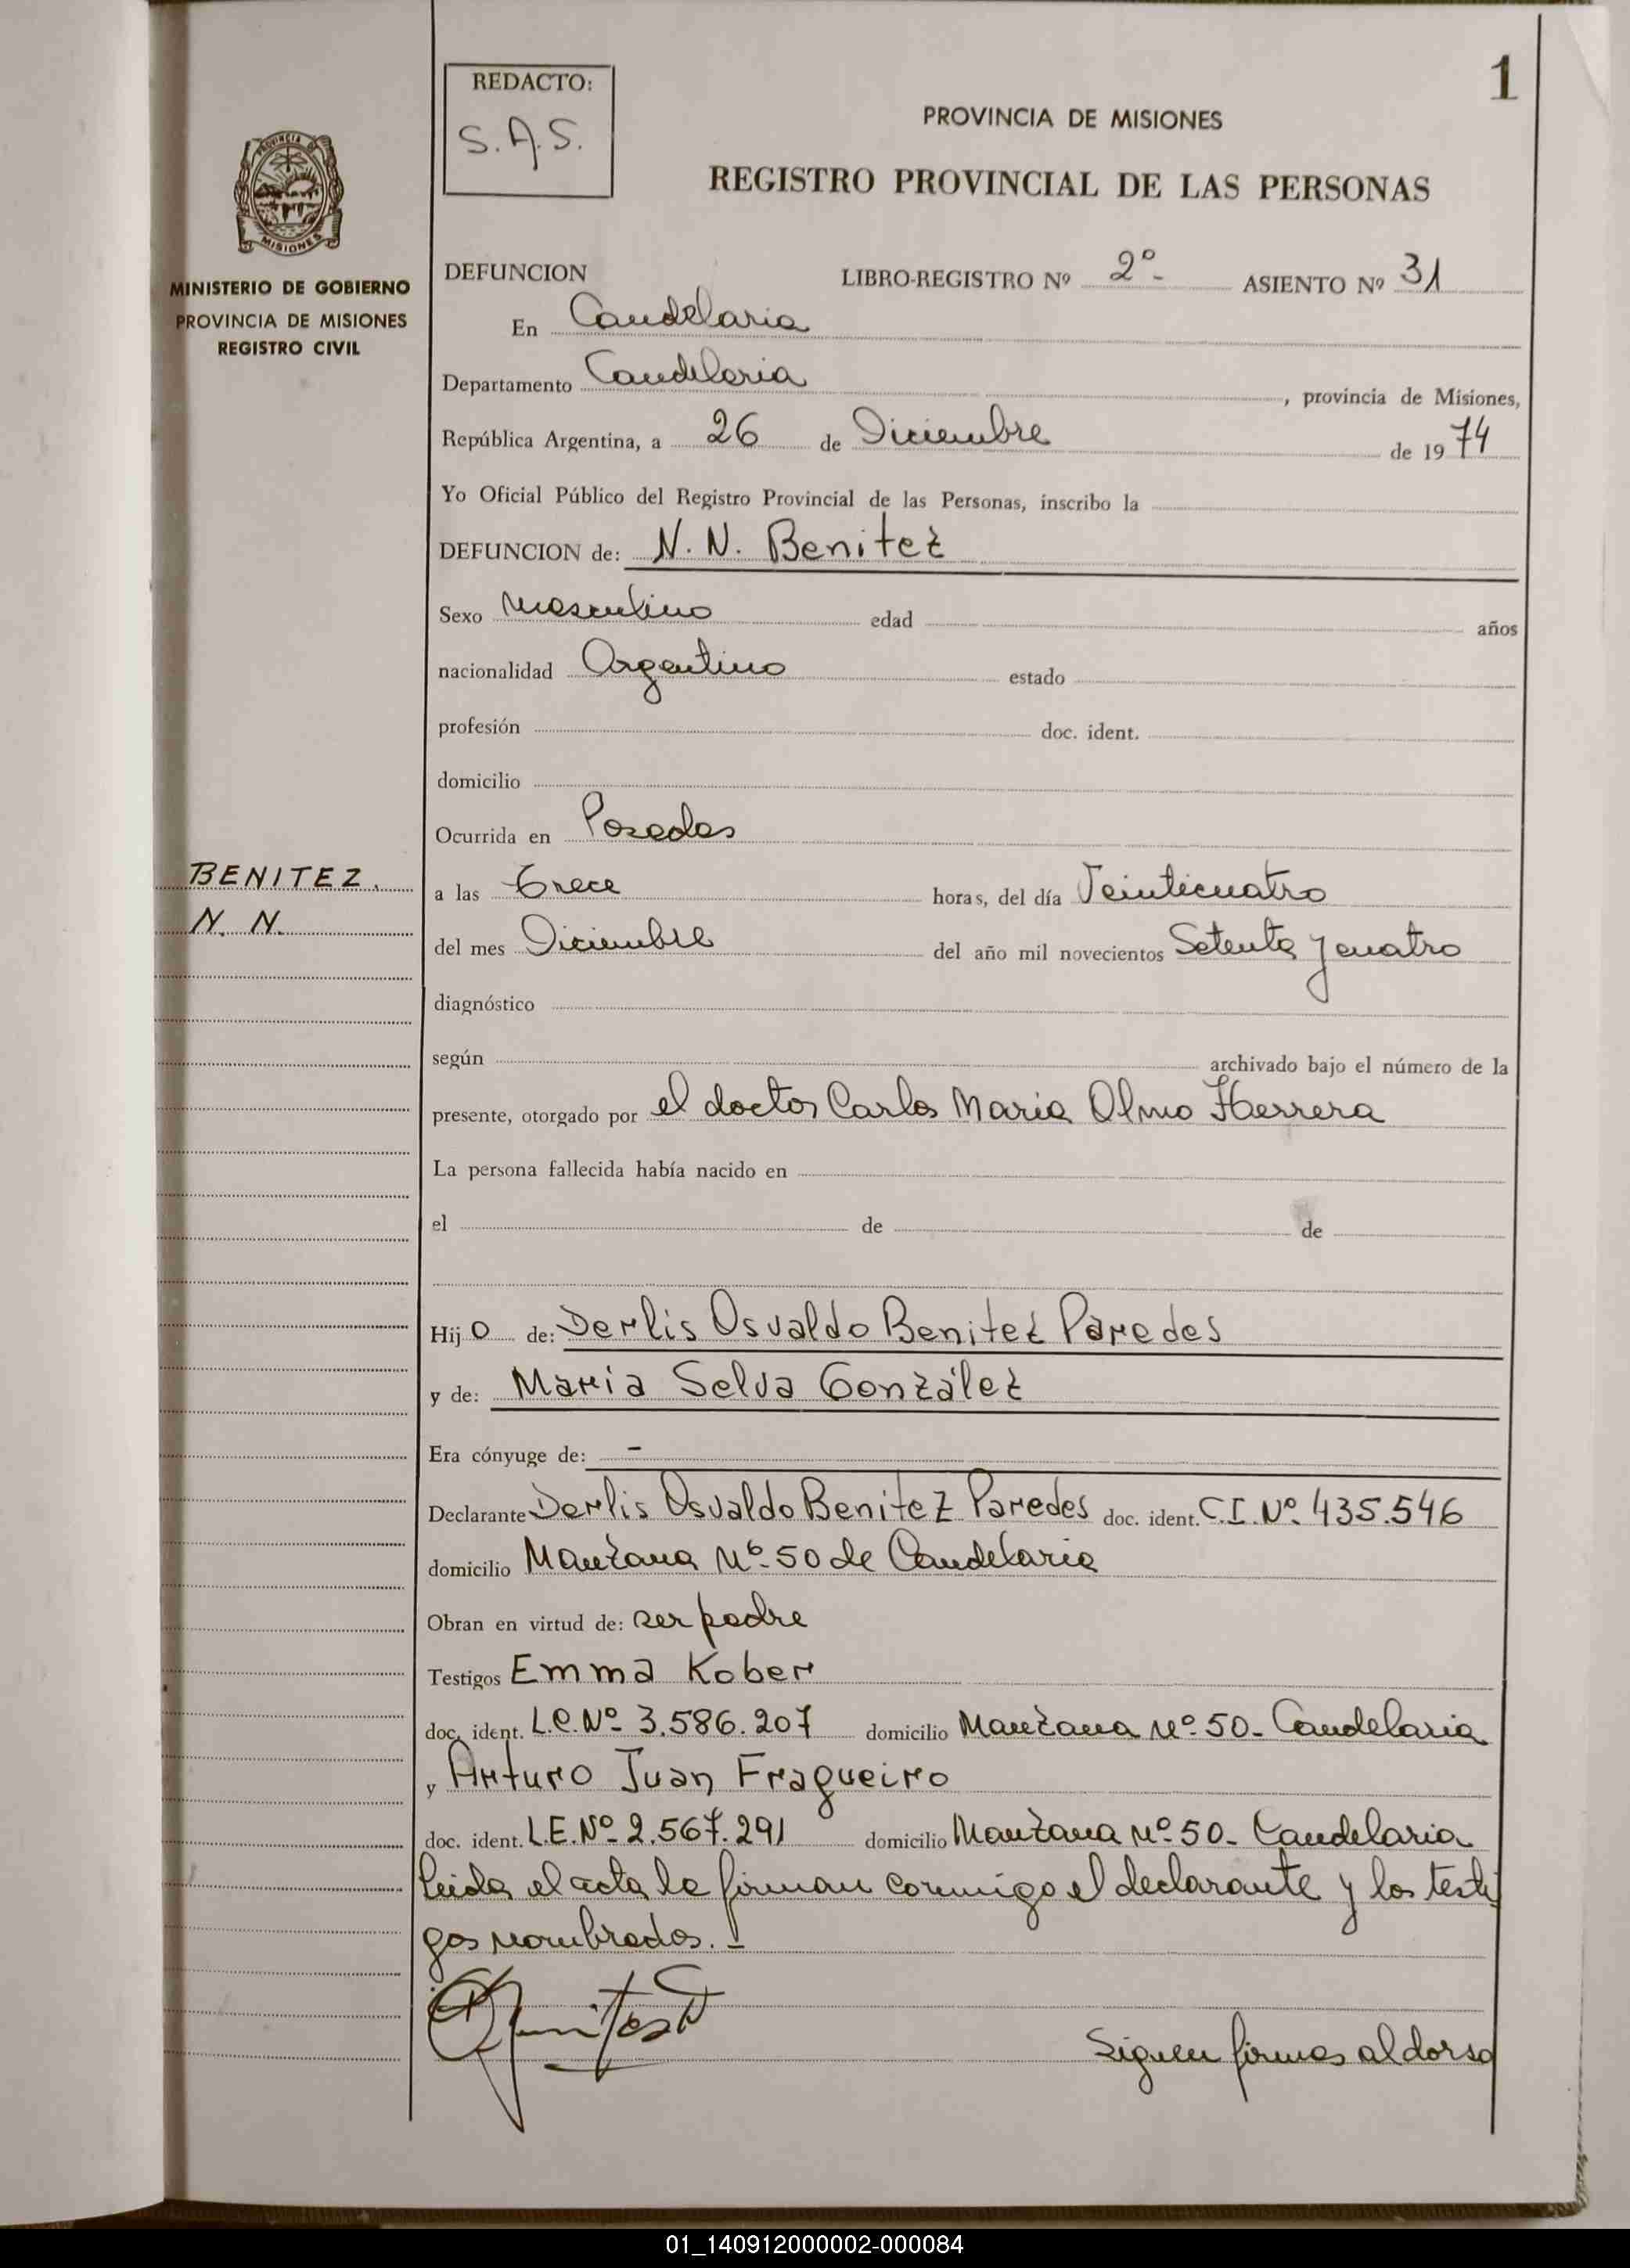 1
REDACTO:
S.A.S.
PROVINCIA DE MISIONES
REGISTRO PROVINCIAL DE LAS PERSONAS
PROVINCIA DE
MISIONES
MINISTERIO DE GOBIERNO
PROVINCIA DE MISIONES
REGISTRO CIVIL
DEFUNCION LIBRO-REGISTRO Nº 2º- ASIENTO Nº 31
En Candelaria
Departamento Candelaria, provincia de Misiones,
República Argentina, a 26 de Diciembre de 1974
Yo Oficial Público del Registro Provincial de las Personas, inscribo la
DEFUNCION de: N. N. Benitez
Sexo Masculino edad años
nacionalidad Argentino estado
profesión doc. ident.
domicilio
Ocurrida en Posadas
BENITEZ.
N. N.
a las Trece horas, del día Veinticuatro
del mes Diciembre del año mil novecientos Setenta y cuatro
diagnóstico
según archivado bajo el número de la
presente, otorgado por el doctor Carlos Maria Olmo Herrera
La persona fallecida había nacido en
el de de
Hijo de: Derlis Osvaldo Benitez Paredes
y de: Maria Selva González
Era cónyuge de: -
Declarante Derlis Osvaldo Benitez Paredes doc. ident. C.I. Nº 435.546
domicilio Manzana Nº 50 de Candelaria
Obran en virtud de: ser padre
Testigos Emma Kober
doc. ident. L.C. Nº 3.586.207 domicilio Manzana Nº 50- Candelaria
y Arturo Juan Fragueiro
doc. ident. L.E. Nº 2.567.291 domicilio Manzana Nº 50- Candelaria
leida el acta la firman conmigo el declarante y los testi
gos nombrados. -
Siguen firmas al dorso
01_140912000002-000084